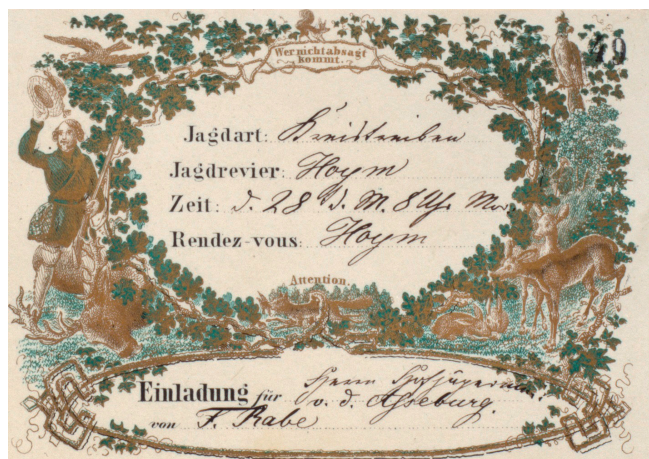 49
Wer nicht absagt
kommt.
Jagdart: Kreistreiben
Jagdrevier: Hoym
Zeit: d. 28 d. M. 8 Uhr Mor.
Rendez-vous: Hoym
Attention.
Einladung für Herrn Hofjägerm.
v. d. Asseburg.
von F. Rabe